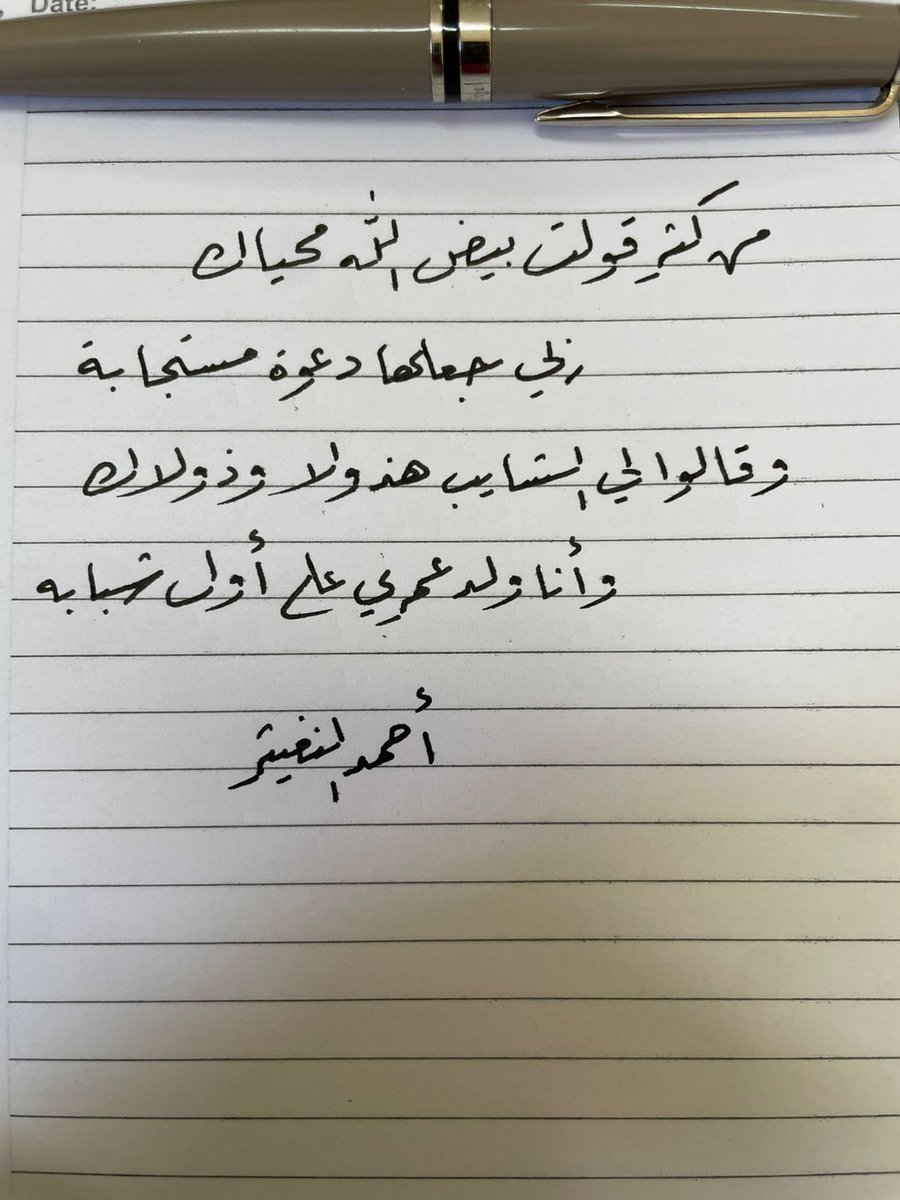 Date:
من كثر قولت بيض الله محياك
ربي جعلها دعوة مستجابة
وقالوا لي الشايب هذولا وذولاك
وأنا ولد عمري على أول شبابه
أحمد